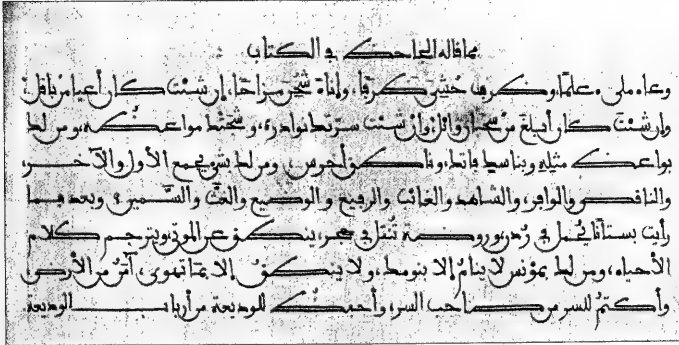 مما قاله الجاحظ في الكتاب
وعاء ملئ علما، وظرف حشي ظرفا، وإناء شحن مزاحا، إن شئت كان أعيا من باقل،
وإن شئت كان أبلغ من سحبان وائل، وإن شئت سرتك نوادره، وشجتك مواعظه، ومن لك
بواعظ مثله وبناسك فاتك، وناطق أخرس، ومن لك بشيء يجمع الأول والآخر،
والناقص والوافر، والشاهد والغائب والرفيع والوضيع والغث والسمين؛ وبعد فما
رأيت بستانا يحمل في ردن، وروضة تنقل في حجر، ينطق عن الموتى ويترجم كلام
الأحياء، ومن لك بمؤنس لا ينام إلا بنومك، ولا ينطق إلا بما تهوى، آمن من الأرض،
وأكتم للسر من صاحب السر، وأحفظ للوديعة من أرباب الوديعة